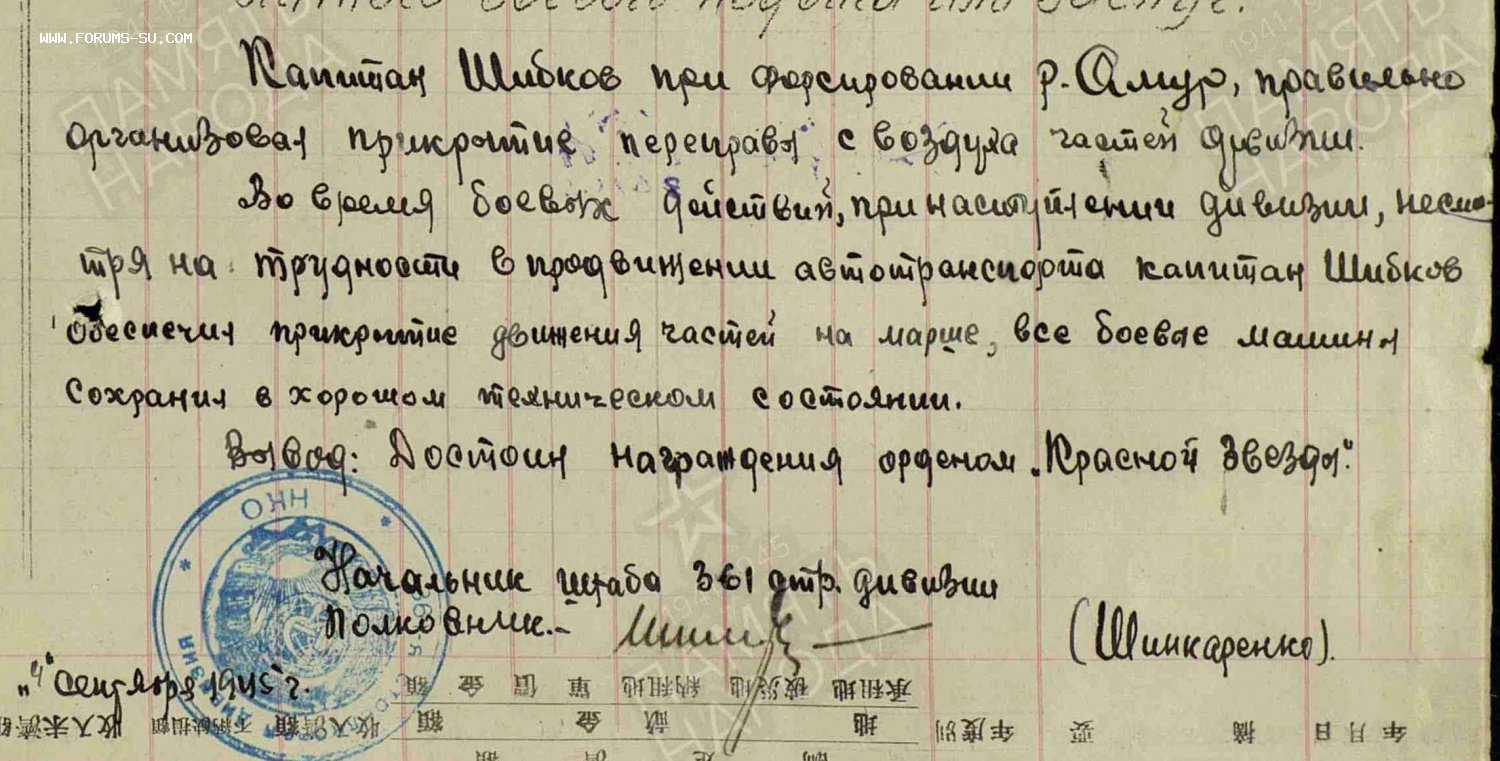 WWW.FORUMS-SU.COM
Капитан Шибков при форсировании р. Амур, правильно
организовал прикрытие переправы с воздуха частей дивизии.
Во время боевых действий, при наступлении дивизии, несмо-
тря на трудности в продвижении автотранспорта капитан Шибков
обеспечил прикрытие движения частей на марше, все боевые машины
сохранил в хорошом техническом состоянии.
Вывод: Достоин награждения орденом „Красной Звезды".
НКО
Начальник штаба 361 стр. дивизии
Полковник.-
(Шинкаренко).
„4" Сентября 1945 г.
ДИВИЗИЯ
承租地 被災地 納租地 單 價 金 額
年月日 摘 要 年度別 地 献 金 額 收入濟額 不納缺損額 收入未濟額
ПАМЯТЬ
НАРОДА
1941-1945